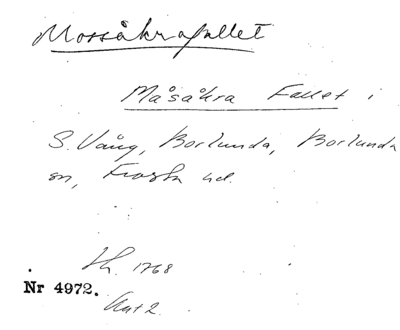 Mossåkrafallet
Måsåkra Fallet i
S. Vång, Borlunda, Borlunda
sn, Frosta hd.
1768
Nr 4972.
Akt 2.